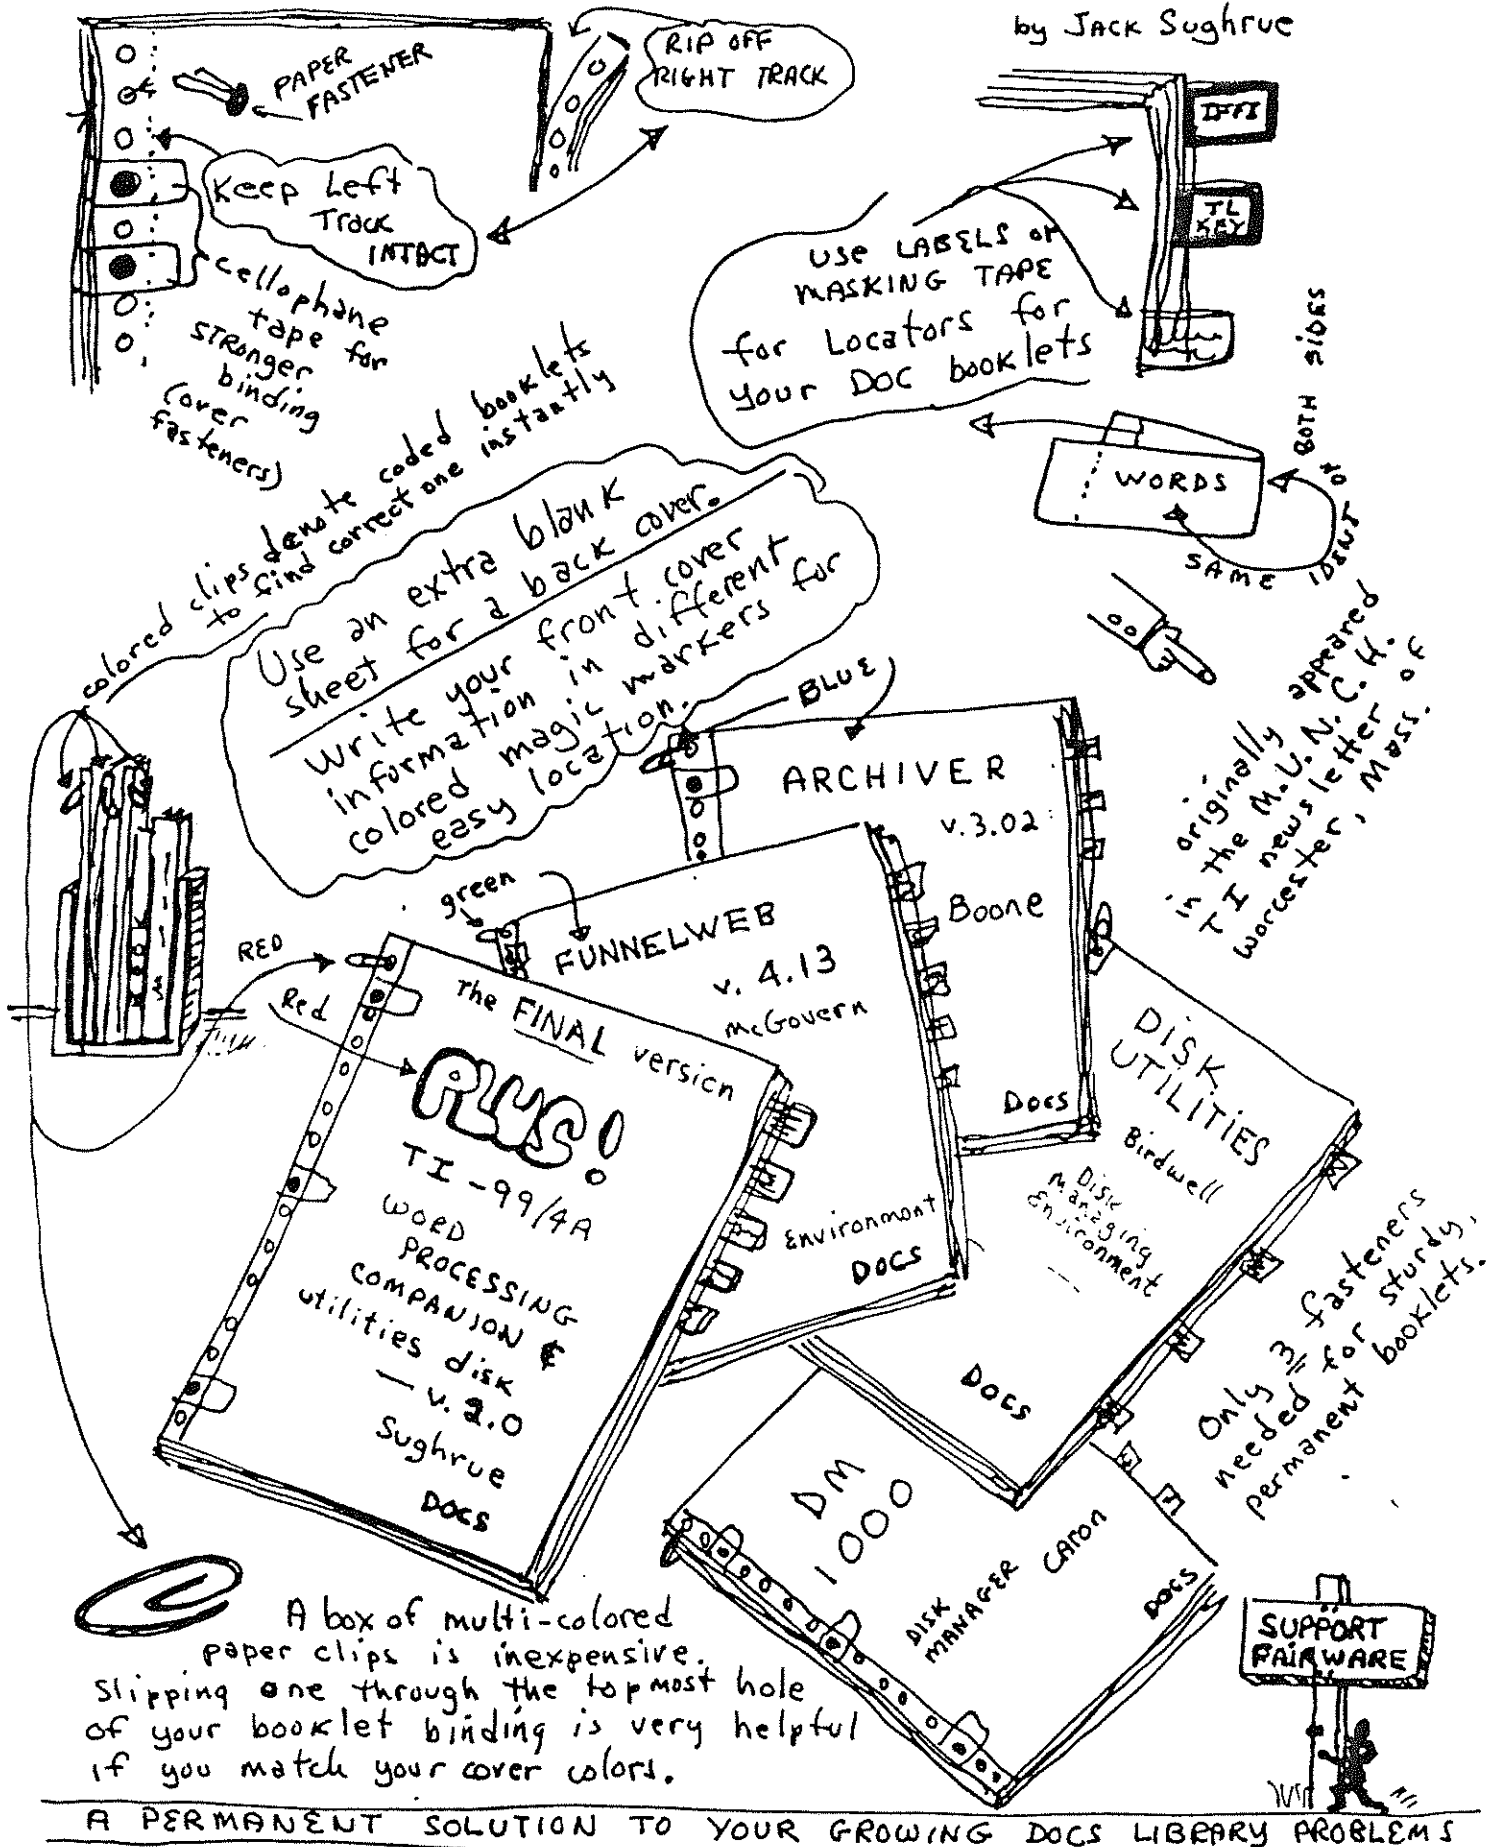 by JACK Sughrue
PAPER
FASTENER
RIP OFF
RIGHT TRACK
Keep Left
Track
INTACT
cellophane
tape for
STRonger
binding
(over
fasteners)
IFFI
TL
KEY
use LABELS or
MASKING TAPE
for Locators for
your DOC booklets
BOTH SIDES
WORDS
NO
SAME IDENT
colored clips denote coded booklets
to find correct one instantly
Use an extra blank
sheet for a back cover.
Write your front cover
information in different
colored magic markers for
easy location.
originally appeared
in the M.U.N.C.H.
TI newsletter of
Worcester, Mass.
BLUE
ARCHIVER
v.3.02
Boone
Docs
green
FUNNELWEB
v. 4.13
McGovern
Environment
DOCS
RED
Red
The FINAL version
PLUS!
TI-99/4A
WORD
PROCESSING
COMPANION &
utilities disk
— v. 2.0
Sughrue
DOCS
DISK
UTILITIES
Birdwell
Disk
Managing
Environment
DOCS
Only 3 fasteners
needed for sturdy,
permanent booklets.
DM
1000
DISK
MANAGER
CATON
DOCS
A box of multi-colored
paper clips is inexpensive.
Slipping one through the topmost hole
of your booklet binding is very helpful
if you match your cover colors.
SUPPORT
FAIRWARE
A PERMANENT SOLUTION TO YOUR GROWING DOCS LIBRARY PROBLEMS